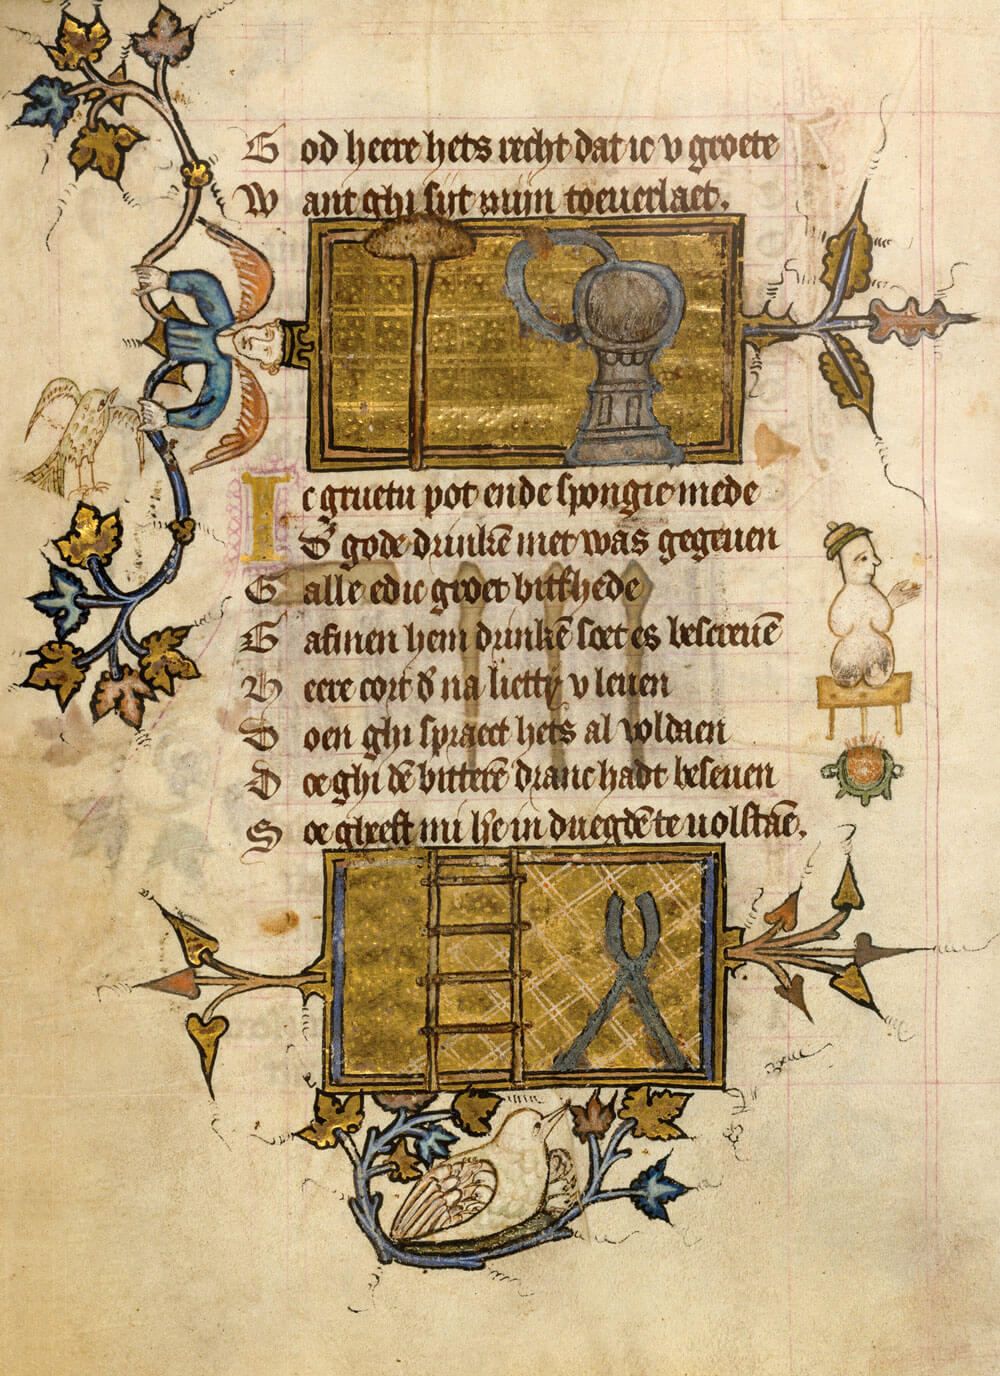 God heere hets recht dat ic v groete
Want ghi sijt mijn toeuerlaet.
Ic gruetu pot ende spongie mede
D' gode drinkē met was gegeuen
Galle edic groet bitt'hede
Gafmen hem drinkē soet es bescreuē
Heere cort d' na lietty v leuen
Doen ghi spraect hets al voldaen
Doe ghi dē bitterē dranc hadt beseuen
Soe gheeft mi h'e in duegdē te uolstaē.